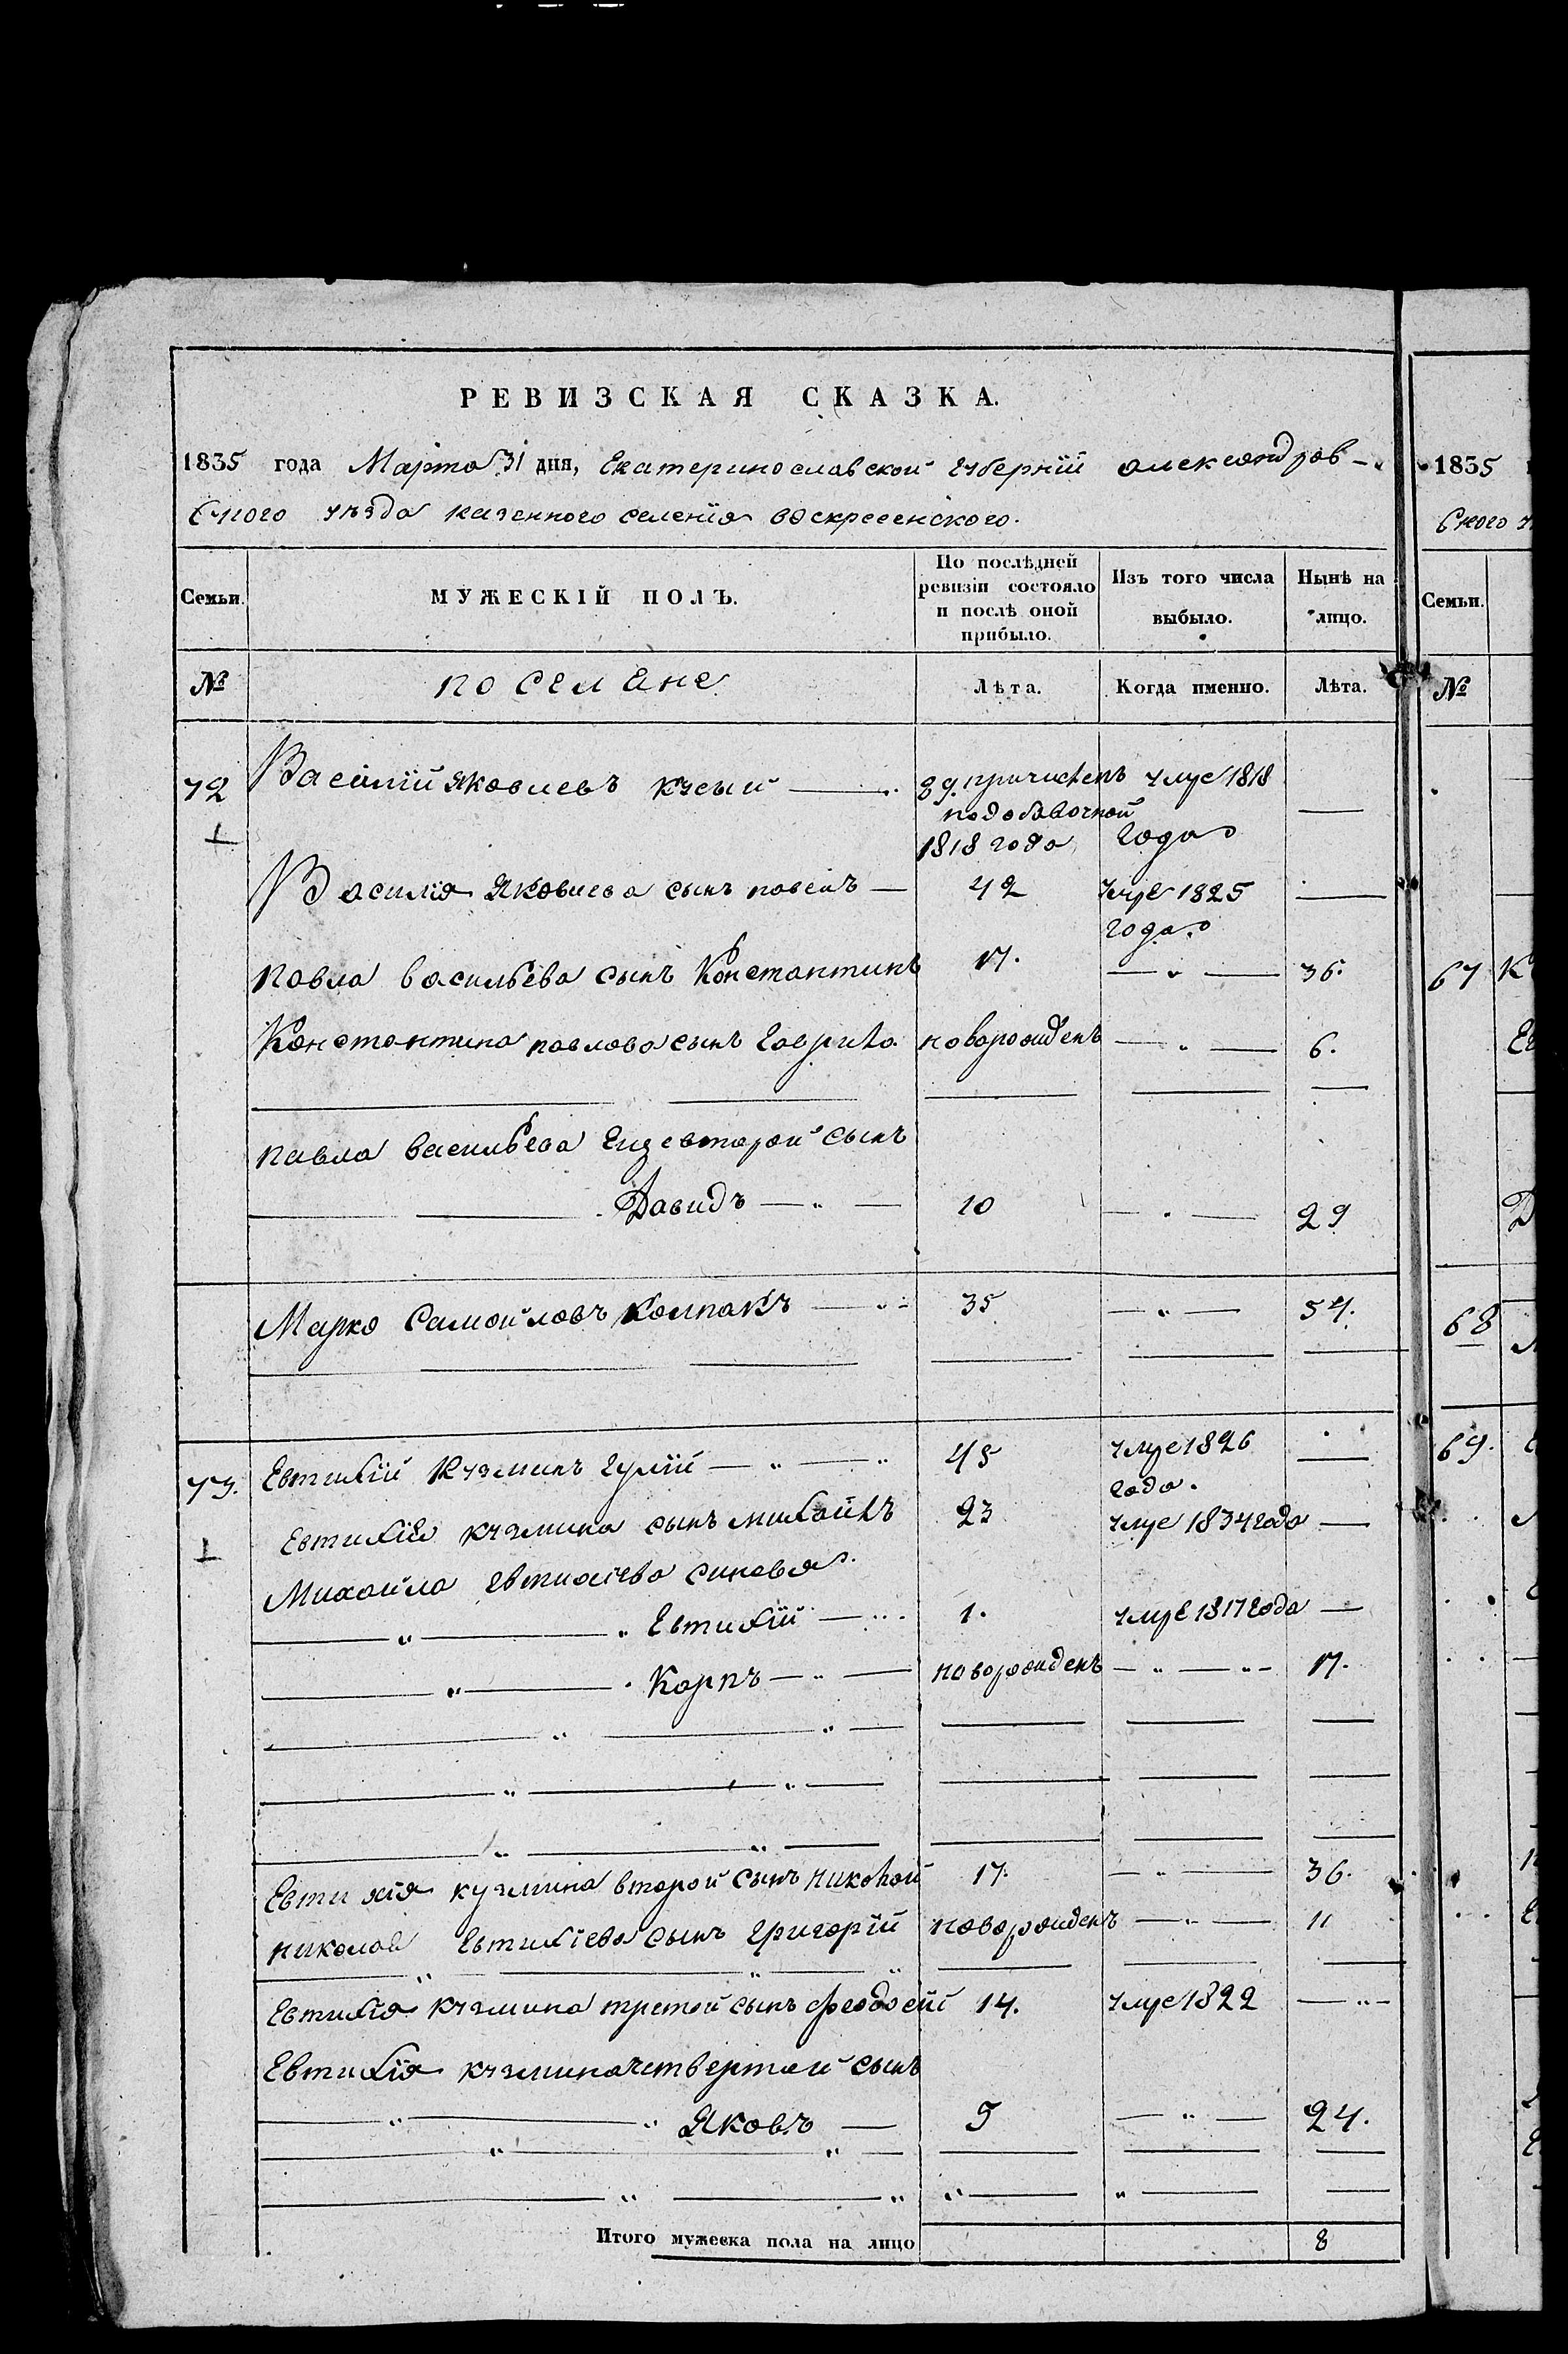 РЕВИЗСКАЯ СКАЗКА.
1835 года Марта 31 дня, Екатеринославской Губернїй александров-
Скаго уѣзда казенного селенїя воскресенского.
Семьи. МУЖЕСКІЙ ПОЛЪ. По послѣдней ревизіи состояло и послѣ оной прибыло. Изъ того числа выбыло. Нынѣ на лицо.
№ поселяне Лѣта. Когда именно. Лѣта.
72 Василїй Яковлевъ 89. причисленъ умре 1818
подобавочной
1818 года года
Василїя Яковлева сынъ павелъ — 42 умре 1825 —
года
павла васильева сынъ Константинъ 17. — „ — 36.
Константина павлова сынъ гаврило новорожденъ — „ — 6.
павла васильева еще второй сынъ
Давидъ — „ — 10 — „ — 29
Марко Самойловъ Колпакъ — „ - 35 — „ — 54.
73. Евтихїй Кузминъ Гулїй — „ — „ 45 умре 1826 —
года.
Евтихїя кузмина сынъ михайлъ 23 умре 1834 года —
Михайла евтихїева синовья
„ Евтихїй — „ 1. умре 1817 года —
„ Карпъ — „ — новорожденъ — „ — „ - 17.
Евтихїя кузмина второй сынъ николай 17. — „ — 36.
николая Евтихїева сынъ григорїй новорожденъ — „ — 11
Евтихїя кузмина третой сынъ феодосїй 14. умре 1822 — „ -
Евтихїя кузмина четвертой сынъ
„ Яковъ — 5 — „ — 24.
Итого мужеска пола на лицо 8
1835
Скаго у
Семьи.
№
67
68
69.